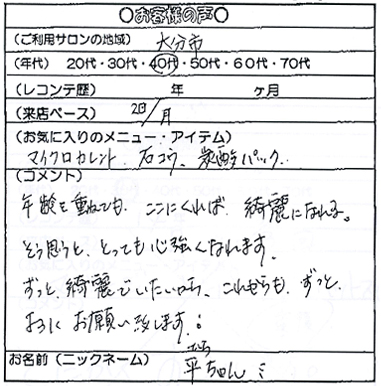 ○お客様の声○
(ご利用サロンの地域) 大分市
(年代) 20代・30代・40代・50代・60代・70代
(レコンテ歴) 年 ヶ月
(来店ペース) 2回/月
(お気に入りのメニュー・アイテム)
マイクロカレント、石コウ、炭酸パック、
(コメント)
年齢を重ねても、ここにくれば、綺麗になれる。
そう思うと、とっても心強くなれます。
ずっと、綺麗でいたいから、これからも、ずっと、
お願い致します
お名前(ニックネーム) 平ちゃん